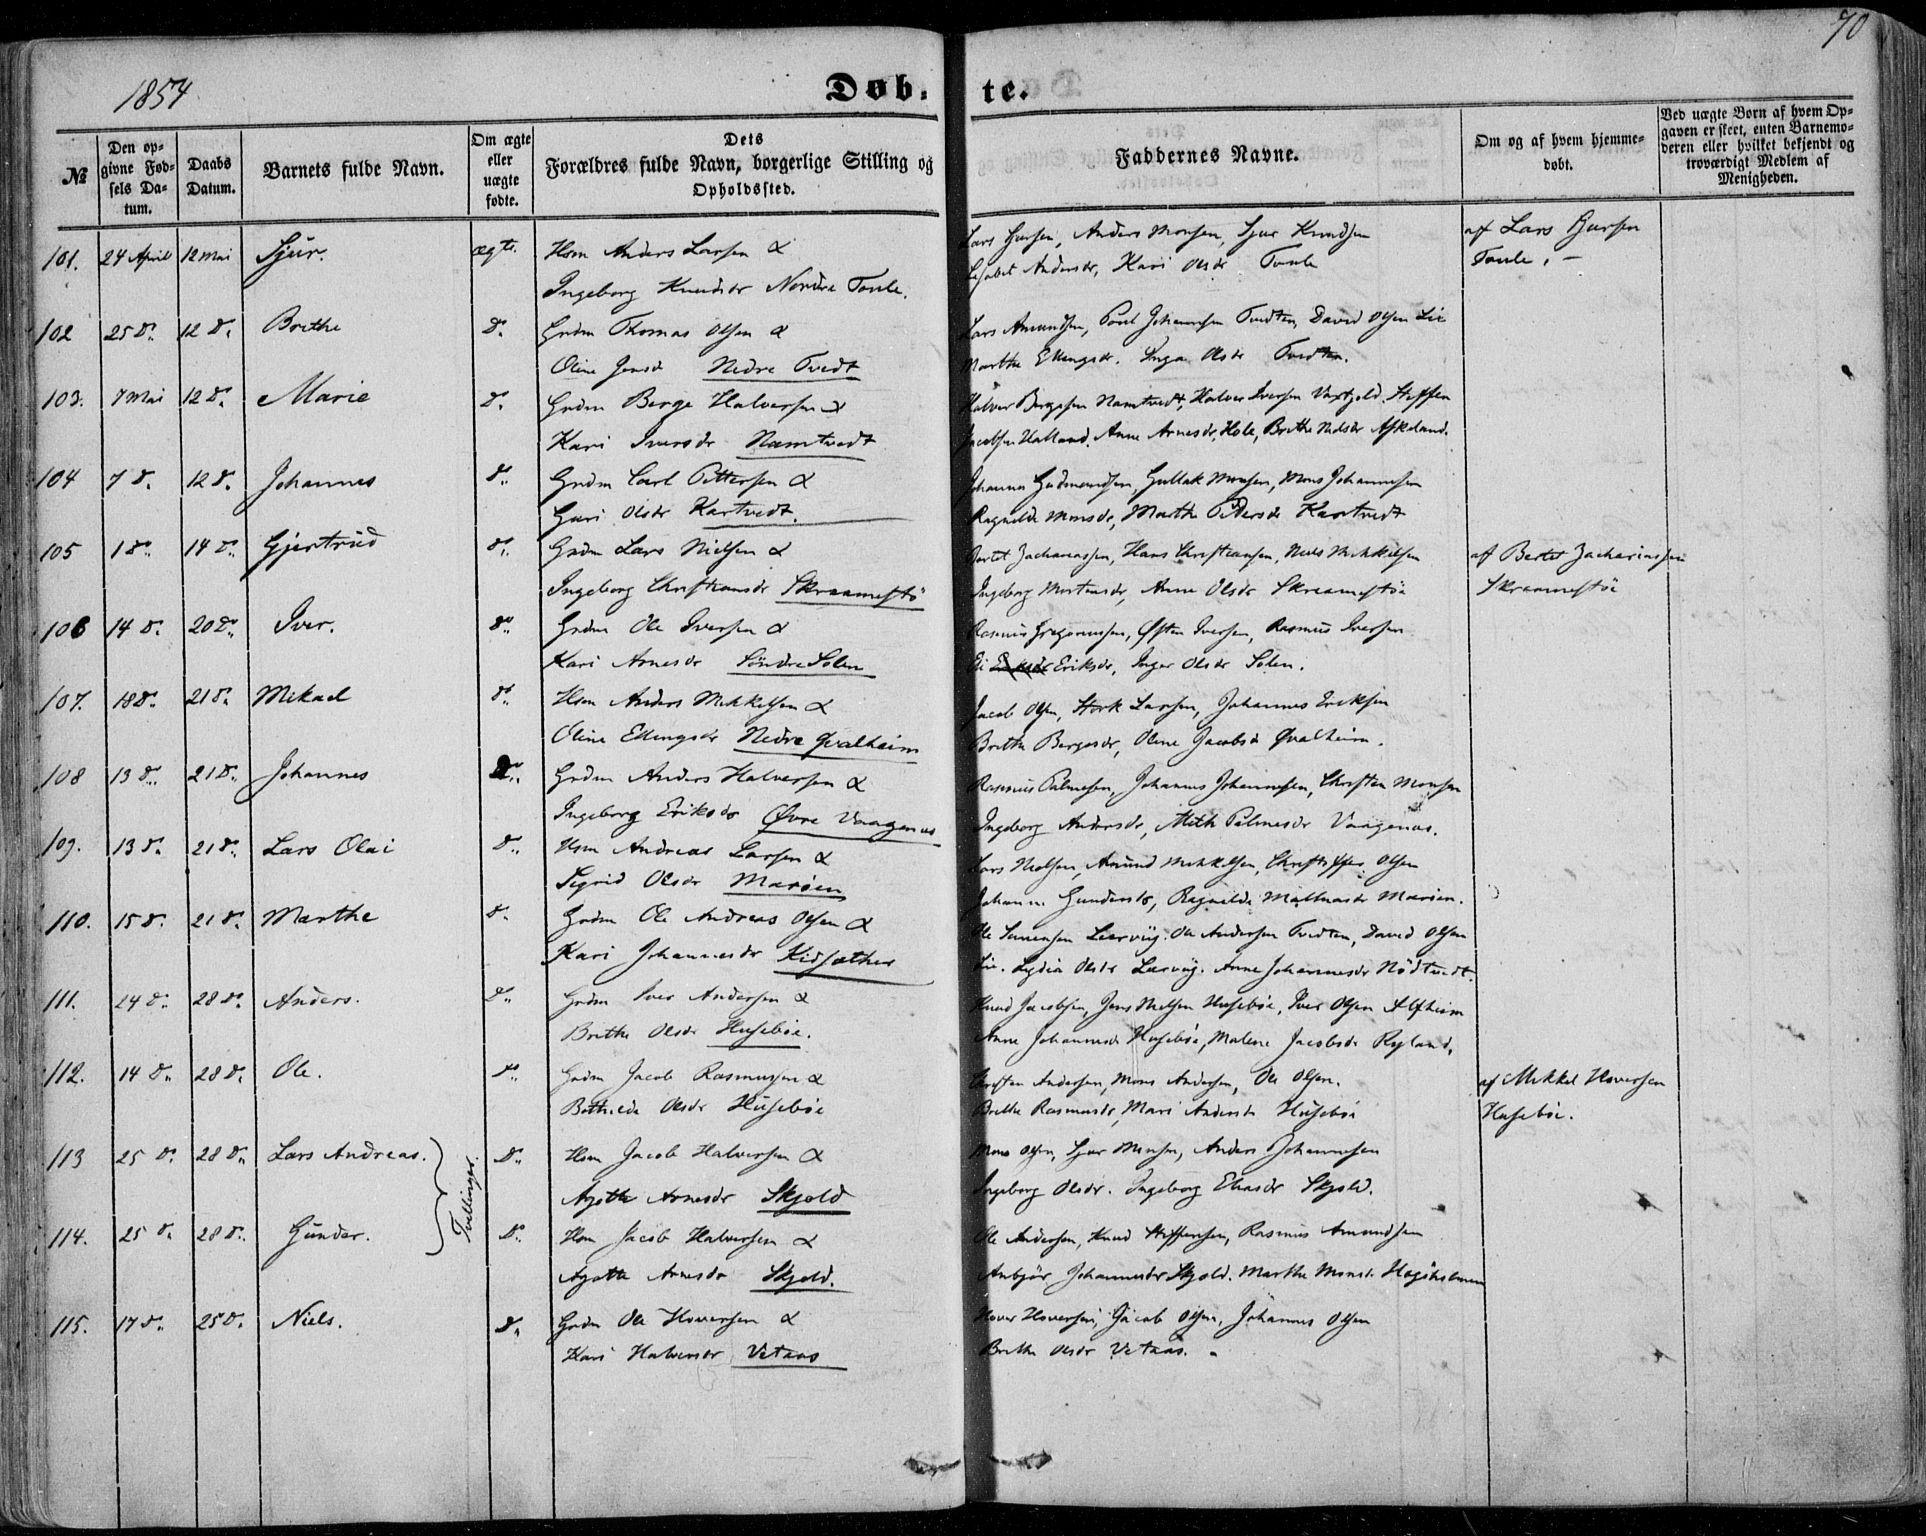 70
1854
Døb-te.
№
Den opgivne Fødsels Datum.
Daabs Datum.
Barnets fulde Navn.
Om ægte eller uægte fødte.
Dets Forældres fulde Navn, borgerlige Stilling og Opholdssted.
Faddernes Navne.
Om og af hvem hjemmedøbt.
Ved uægte Børn af hvem Opgaven er skeet, enten Barnemoderen eller hvilket bekjendt og troværdigt Medlem af Menigheden.
101. 24 April 12 Mai Sjur. ægte. Hsm Anders Larsen & Lars Anders Monsen, Sjur Knudsen af Lars
Ingeborg Knudsdr Nordre Andersdr, Kari Olsdr
102 25 d. 12 d. Brithe d. Grdm Thomas Olsen & Lars Amundsen, Poul Johannesen Tvedten, David Olsen Lie
Oline Jensd Nedre Tvedt Marthe Ellingsdr. Inga Olsdr Tvedten.
103. 7 Mai 12 d. Marie d. Grdm Berge Halversen & Halver Bergesen Namtvedt, Halver Iversen Steffen
Kari Iversdr Namtvedt Jacobsen Halland. Anne Arnesdr, Hole, Brithe Nielsdr Askeland.
104 7 d. 12 d. Johannes d. Grdm Carl Pettersen & Johannes Gudmundsen, Gullak Monsen, Mons Johannesen
Guri Olsdr Kartvedt. Ragnilde Monsdr, Marthe Pedersdr Kartvedt
105 1 d. 14 d. Gjertrud d. Grdm Lars Nielsen & Bertel Zachariassen, Hans Christiansen, Niels Mikkelsen af Bertel Zachariassen
Ingeborg Christiansdr Skraamestö Ingeborg Mortensdr, Anne Olsdr Skraamestöe Skraamestöe
106 14 d. 20 d. Iver. d. Grdm Ole Iversen & Rasmus Gregoriussen, Østen Iversen, Rasmus Iversen
Kari Arnesdr Söndre Solem Eriksdr, Inger Olsdr Solem.
107. 18 d. 21 d. Mikael d. Hsm Anders Mikkelsen & Jacob Olsen, Stork Larsen, Johannes Eriksen
Oline Ellingsdr Nedre Qvalheim Brithe Bergesdr, Oline Jacobsd Qvalheim.
108 13 d. 21 d. Johannes d. Grdm Anders Halversen & Rasmus Palmesen, Johannes Johannesen, Christen Monsen
Ingeborg Eriksdr Øvre Vaagenæs Ingeborg Andersdr, Mith Palmesdr Vaagenæs.
109. 13 d. 21 d. Lars Olai d. Hsm Andreas Larsen & Lars Nielsen, Amund Mikkelsen, Christoffer Olsen
Sigrid Olsdr Maröen Johanne Gundersdr, Ragnilde Maröen.
110. 15 d. 21 d. Marthe d. Grdm Ole Andreas Olsen & Ole Leervig. Ole Andersen Tvedten, David Olsen
Kari Johannesdr Kidsæther Lie. Lydia Olsdr Leervig. Anne Johannesdr Nödtvedt.
111. 24 d. 28 d. Anders. d. Grdm Iver Andersen & Knud Jacobsen, Jens Nielsen Husebøe, Iver Olsen Alfheim
Brithe Olsdr Husebøe. Anne Johannesdr Husebøe, Malene Jacobsdr Ryland.
112. 14 d. 28 d. Ole. d. Grdm Jacob Rasmussen & Christen Andersen, Mons Andersen, Ole Olsen. af Mikkel Hoversen
Olsdr Husebøe Brithe Rasmusdr, Mari Andersdr Husebøe Husebøe.
113 25 d. 28 d. Lars Andreas. Tvillinger. d. Hsm Jacob Halversen & Mons Olsen, Sjur Monsen, Anders Johannesen
Agathe Arnesdr Skjold Ingeborg Olsdr. Ingeborg Eliasdr Skjold.
114. 25 d. 28 d. Gunder. d. Hsm Jacob Halversen & Ole Andersen, Knud Steffensen, Rasmus Amundsen
Agathe Arnesdr Skjold. Anbjör Johannesdr Skjold. Marthe Monsd.
115. 17 d. 25 d. Niels. d. Grdm Ole Hoversen & Hover Hoversen, Jacob Olsen, Johannes Olsen
Kari Halversdr Vetaas Brithe Olsdr Vetaas.